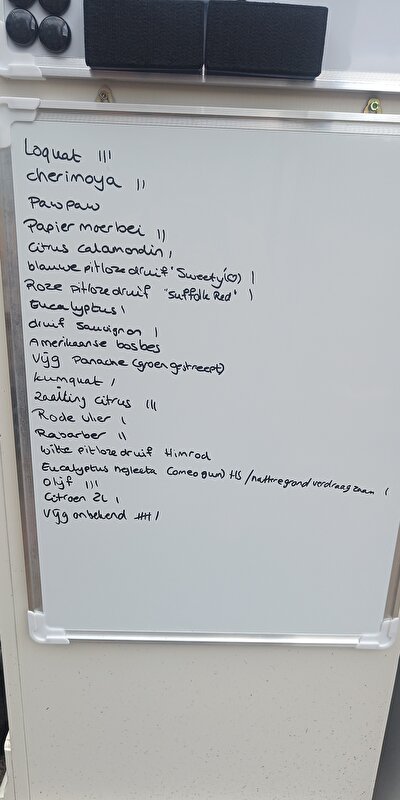 Loquat |||
cherimoya ||
Pawpaw
Papier moerbei ||
Citrus calamondin |
blauwe pitloze druif "Sweety" (♡) |
Roze pitloze druif "Suffolk Red" |
Eucalyptus |
druif Sauvignon |
Amerikaanse bosbes
Vijg Panache (groen gestreept)
kumquat |
zaailing citrus |||
Rode vlier |
Rabarber ||
witte pitloze druif Himrod
Eucalyptus neglecta (omeo gum) HS / natte grond verdraagzaam |
Olijf |||
Citroen 2L |
Vijg onbekend |||| |